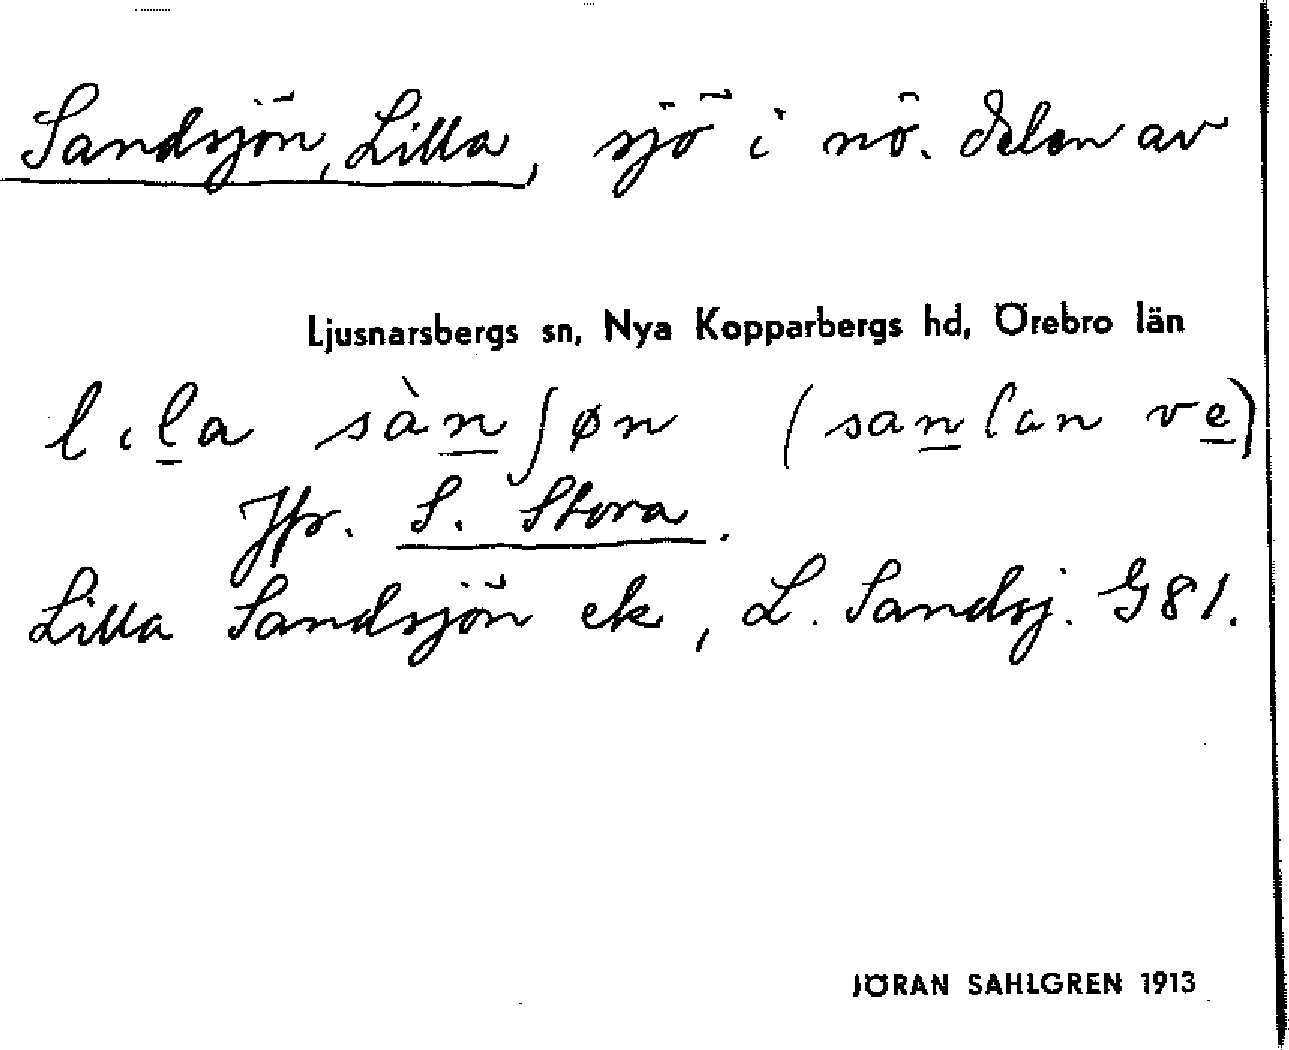 Sandsjön, Lilla, sjö i nö. delen av
Ljusnarsbergs sn, Nya Kopparbergs hd, Örebro län
lıl̲a sàn̲ʃøn (san̲ ve̲)
Jfr. S. Stora.
Lilla Sandsjön ek, L. Sandsj. G81.
JÖRAN SAHLGREN 1913